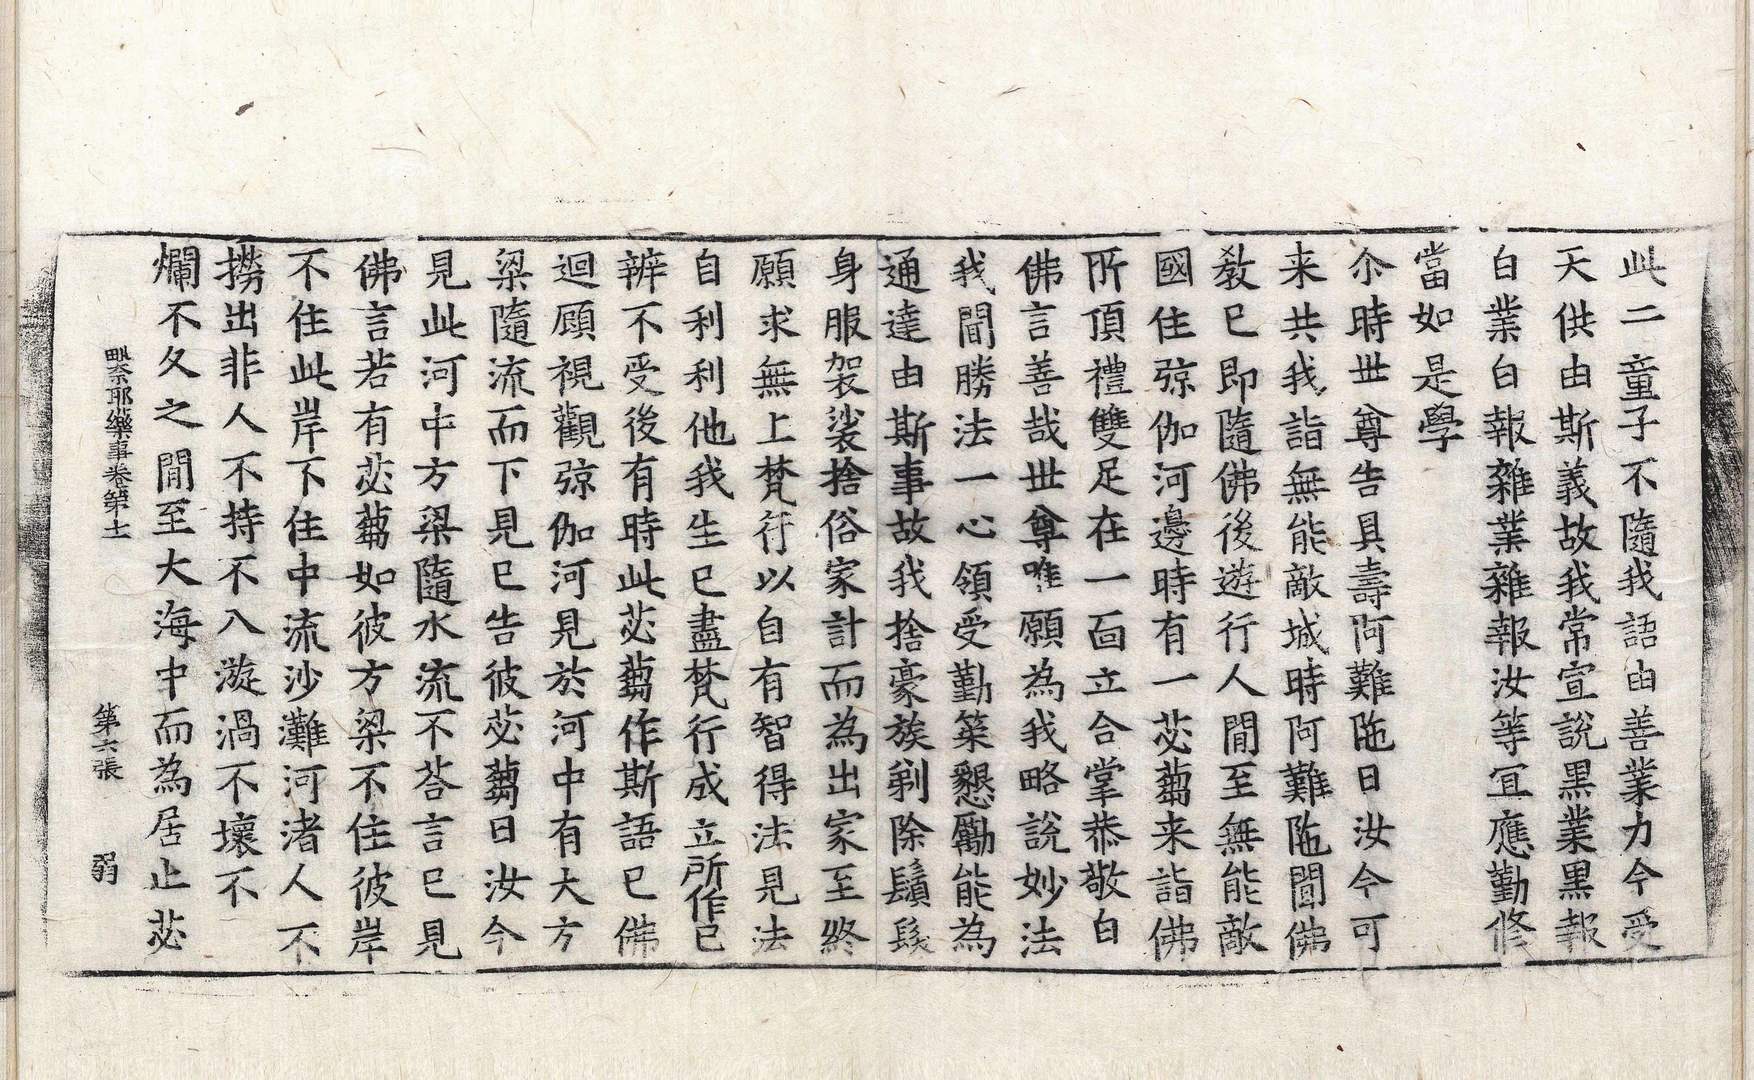 此二童子不隨我語由善業力今受
天供由斯義故我常宣說黒業黒報
白業白報雜業雜報汝等冝應勤修
當如是學
尒時世尊告具壽阿難陁曰汝今可
来共我詣無能敵城時阿難陁聞佛
教已即隨佛後遊行人間至無能敵
國住弶伽河邊時有一苾蒭来詣佛
所頂禮雙足在一面立合掌恭敬白
佛言善哉世尊唯願為我略說妙法
我聞勝法一心領受勤策懇勵能為
通達由斯事故我捨豪族剃除鬚髮
身服袈裟捨俗家計而為出家至終
願求無上梵行以自有智得法見法
自利利他我生已盡梵行成立所作已
辦不受後有時此苾蒭作斯語已佛
迴顧視觀弶伽河見於河中有大方
梁隨流而下見已告彼苾蒭曰汝今
見此河中方梁隨水流不荅言已見
佛言若有苾蒭如彼方梁不住彼岸
不住此岸下住中流沙灘河渚人不
撈出非人不持不入漩渦不壞不
爛不久之間至大海中而為居止苾
毗奈耶藥事卷第十一　第六張　弱